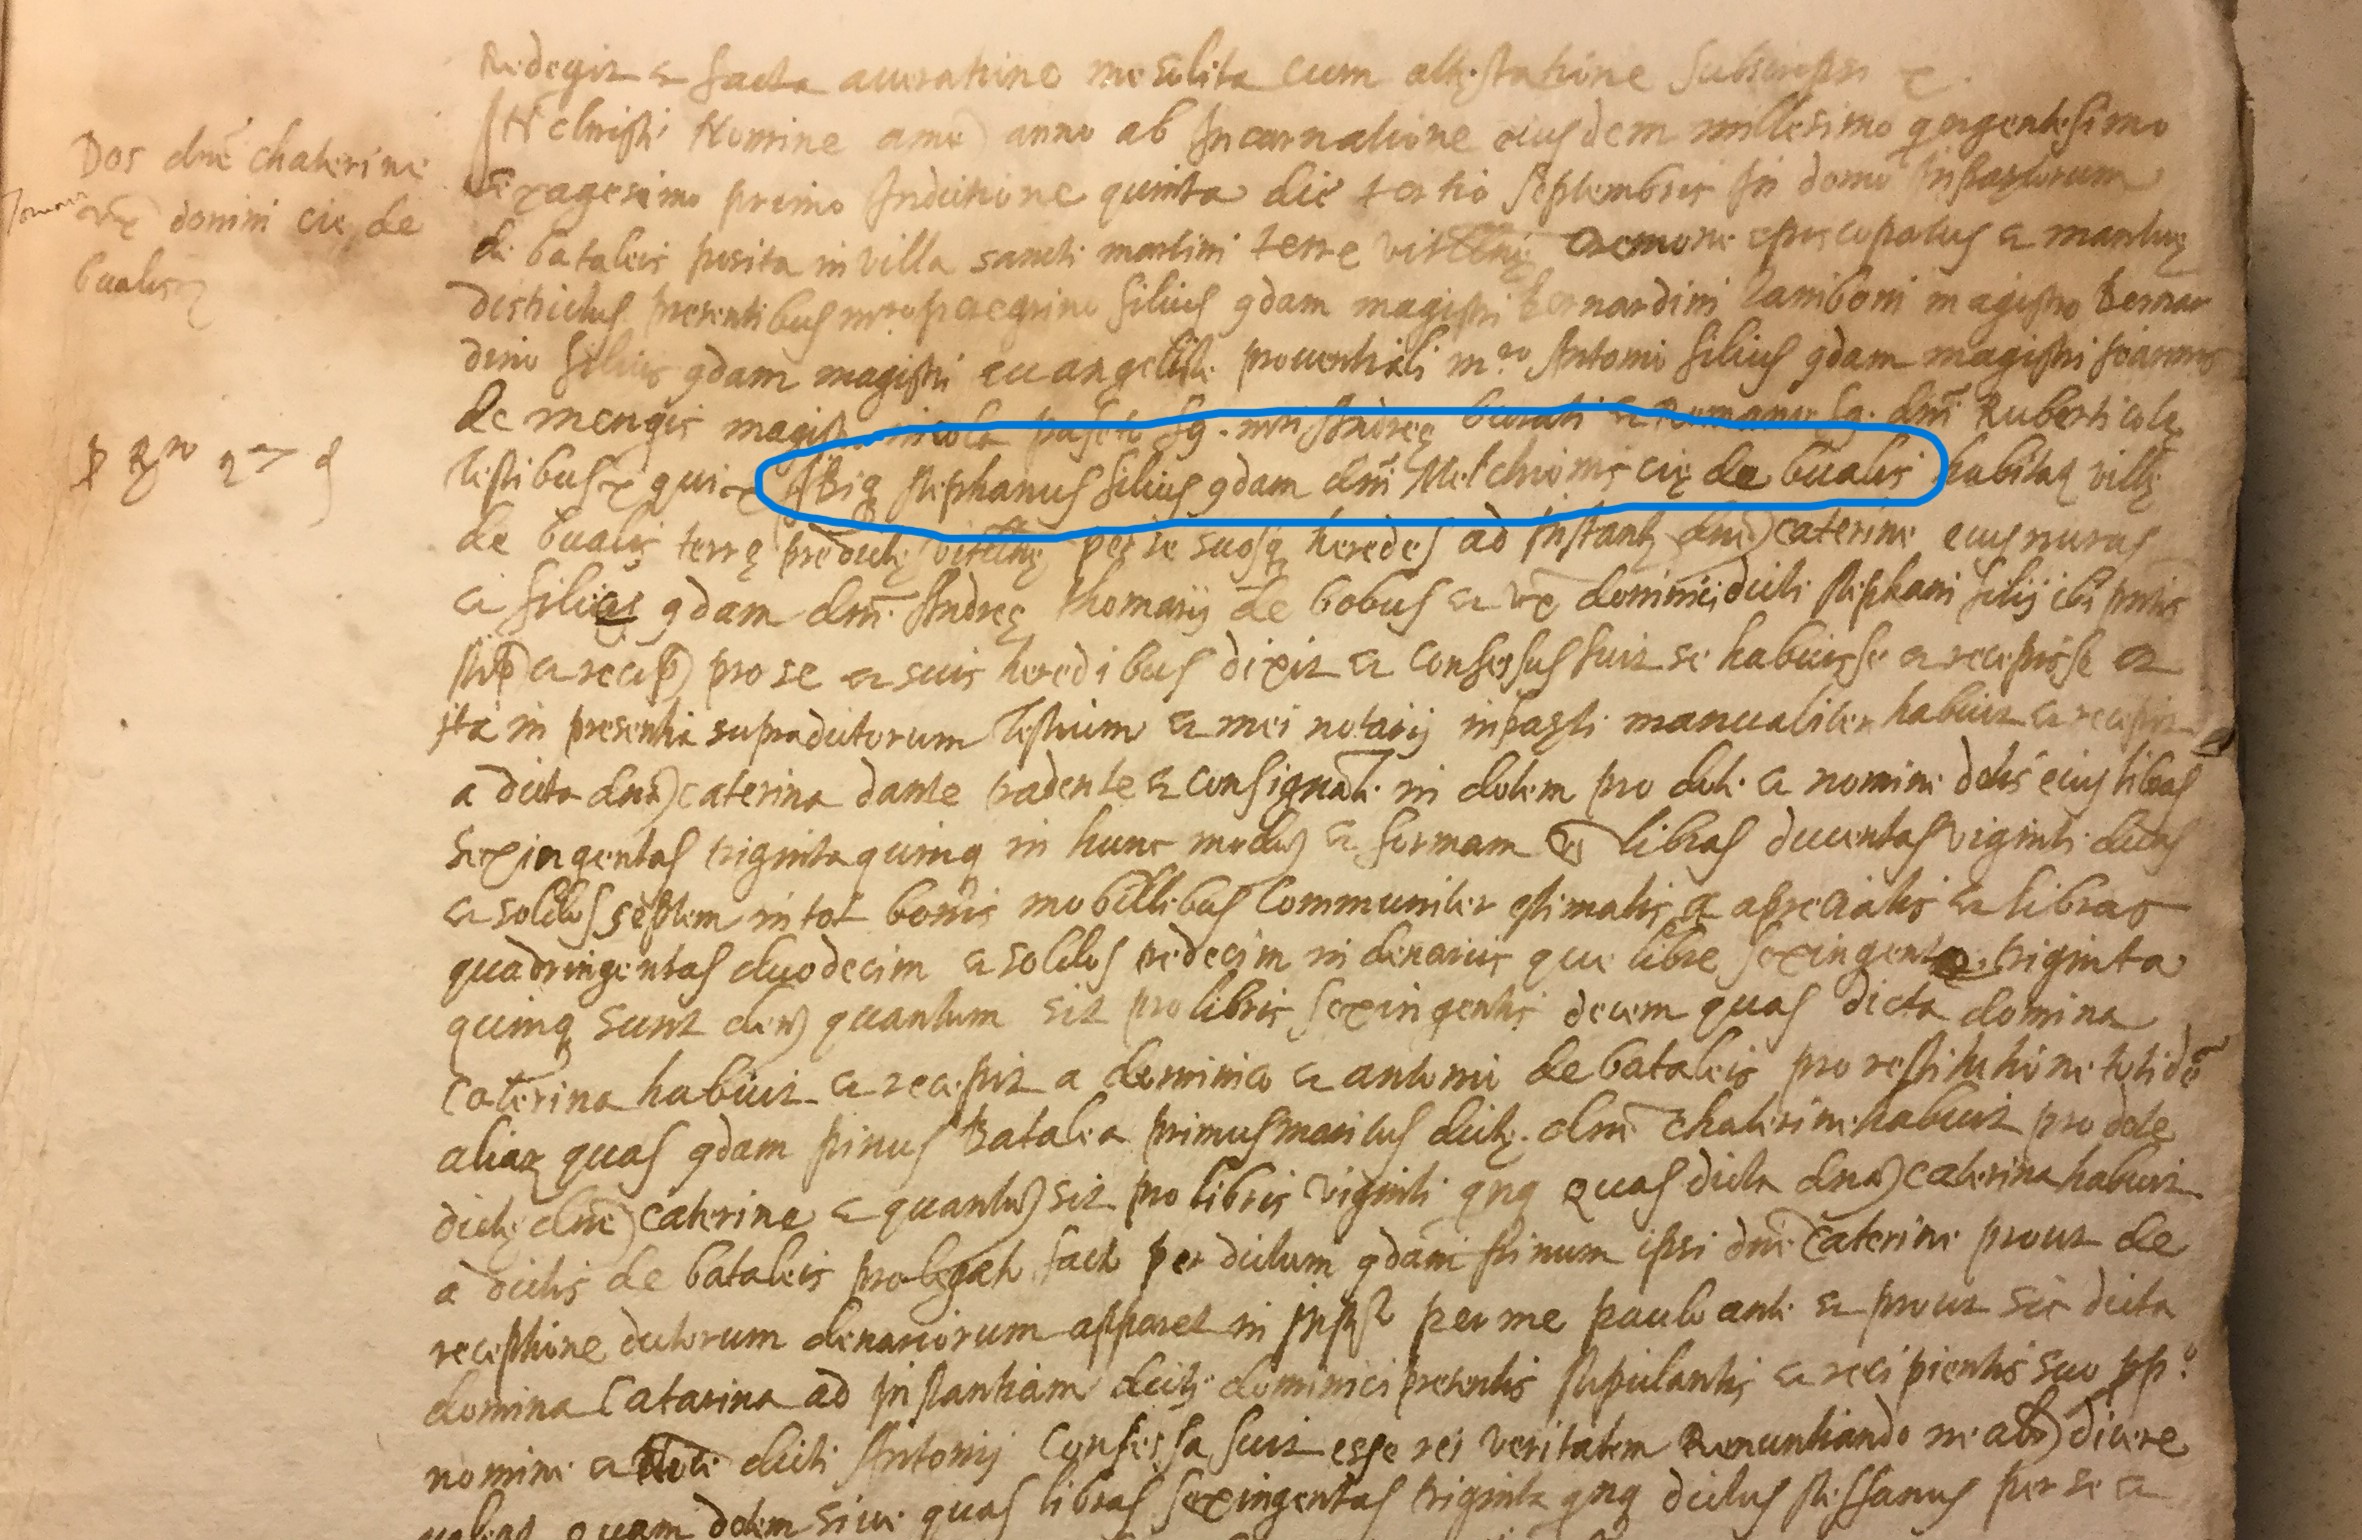 Redegit et facta averatione me solita cum attestatione subscripsi
IN christi Nomine ame) anno ab Incarnatione eiusdem millesimo qngentesimo
Dos dne chaterine
sexagesimo primo Inditione quinta die tertio septembris In domo
uxr domini cie de
de bataleis posita in villa sancti martini terre vitellne cremone episcopatus et mantue
bualis
districtus presentibus mro peregrino filius qdam magistri bernardini zamboni magistro bernar
dino filius qdam magistri evangeliste proventiali mro Antonio filius qdam magistri Joannis
de mengis magistro nicola paseto fq. mri Andree burati et Romano fq. dni Ruberti cole
testibus qui Ibiq stephanus filius qdam dni Melchionis cie de bualis habitaz ville
de bualis terre predicte vitellne per se suosq heredes ad Instantz dne) caterine eius nurus
et filias qdam dni Andree thomasij de bobus et ux dominici dicti stephani filij ibi pntis
stip) et recip) pro se et suis heredibus dixit et confessus fuit se habuisse et recepisse et
ita in presentia supradictorum testium et mei notarij infrasti manualiter habuit et recepit
a dicta dna) caterina dante tradente et consignate in dotem pro dote et nomine dotis eius libras
sexingentas triginta quinq in hunc modu) et formam libras ducentas viginti duas
et soldos septem in tot bonis mobillibus communiter estimatis et apreciatis et libras
quadringentas duodecim et soldos tredecim in denariis que libre sexingente triginta
quinq sunt quantum sit pro libris sexingentis decem quas dicta domina
caterina habuit et recepit a dominico et antonio de bataleis pro restitutione totide
aliaz quas qdam pinus batalea primus maritus dicte dne chaterine habuit pro dote
dicte dne) caterine et quantu) sit pro libris viginti qnq quas dicta dna) caterina habuit
a dictis de bataleis pro legato facto per dictum qdam pinum ipsi dne caterine prout de
receptione dictorum denariorum apparet in per me paulo ante et prout sic dicta
domina Catarina ad Instantiam dicti dominici presentis stipulantis et recipientis suo pp.o
nomine et dicti Antonij Confessa fuit esse rei veritatem Renuntiando dicere
quam dotem sive quas libras sexingentas triginta qnq dictus steffanus per se et